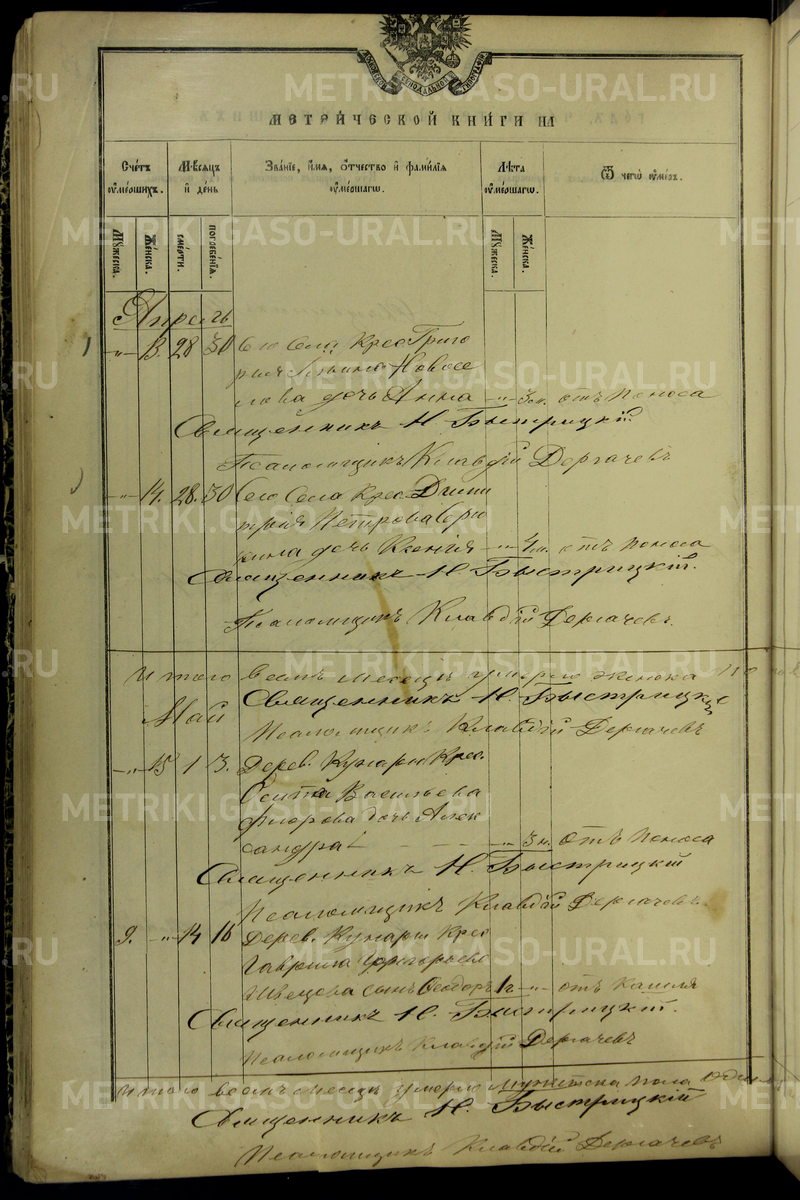 МЕТРИ́ЧЕСКОЙ КНИ́ГИ НА
Сче́тъ ᲂу҆ме́ршихъ.
Мѣ́сяцъ и҆ де́нь
Зва́нїе, и҆́мѧ, ѻ҆́тчество и҆ фами́лїѧ ᲂу҆ме́ршагѡ.
Лѣ́та ᲂу҆ме́ршагѡ.
Ѿ чегѡ̀ ᲂу҆́меръ.
Мꙋ́жеска.
Же́нска.
сме́рти.
погребе́нїѧ.
Мꙋ́жеска.
Же́нска.
Апрель
-"- 13. 28 30 Сего Села Крес Григо
рия Ильина Новосе
лова дочь Анна -"- 3 м. отъ поноса
Священникъ Н. Быстрицкий
Псаломщикъ Клавдій Дергачевъ
-"- 14. 28. 30 Сего Села Крес. Дмит
рия Петрова
дочь Ксения -"- 4 м. отъ поноса
Священникъ Н. Быстрицкій.
Псаломщикъ Клавдій Дергачевъ.
Итого в семъ месяце умерло женска
Священникъ Н. Быстрицкій
Май
Псаломщикъ Клавдій Дергачевъ
-"- 15 1 3. Дерев. Кунары Крес.
Осипа Васильева
Флорова дочь Алек
сандра -"- 3 м. отъ поноса
Священникъ Н. Быстрицкій
Псаломщикъ Клавдій Дергачевъ
9. -"- 14 16 Дерев. Кунары Крес
Гаврила Григорьева
Швецова сынъ Феодоръ 1 г. -"- отъ кашля
Священникъ Н. Быстрицкій.
Псаломщикъ Клавдій Дергачевъ
Итого в семъ месяце умерло мужеска пола один
Священникъ Н. Быстрицкій
Псаломщикъ Клавдій Дергачевъ
METRIKI.GASO-URAL.RU